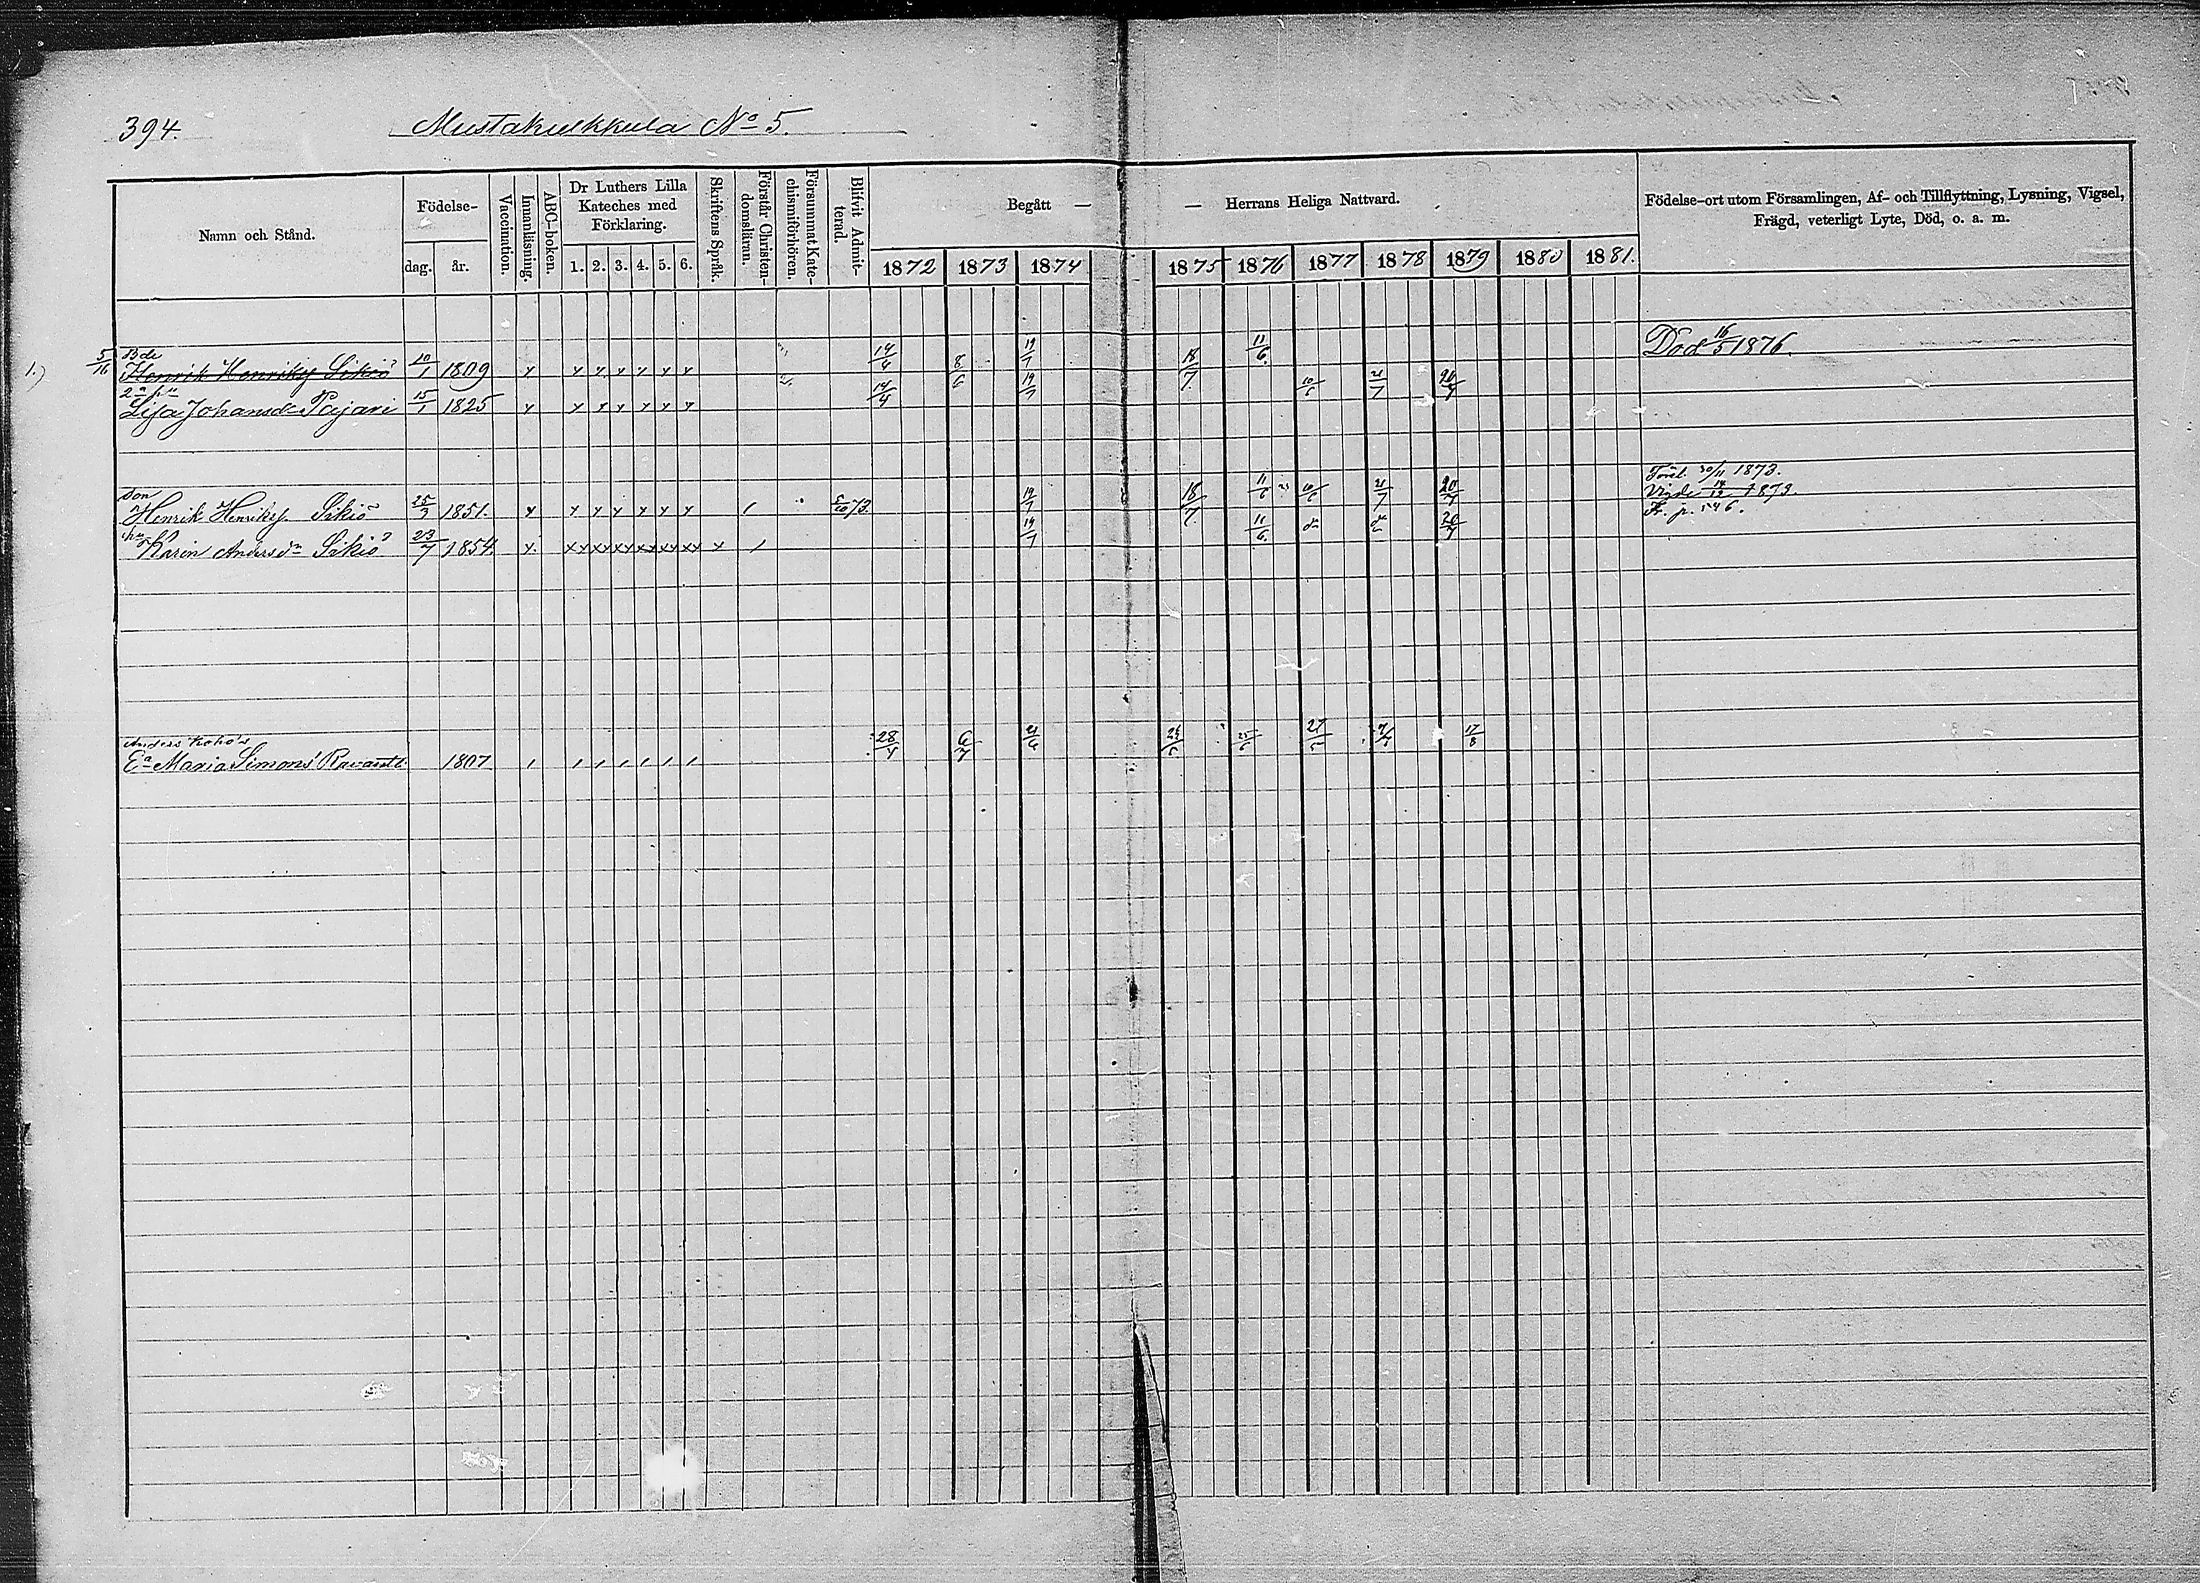 394. Mustakulkkula No 5.
Namn och Stånd. Födelse- dag. år. Vaccination. Innanläsning. ABC-boken. Dr Luthers Lilla Kateches med Förklaring. 1. 2. 3. 4. 5. 6. Skriftens Språk. Förstår Christendomsläran. Försummat Katechismiförhören. Blifvit Admitterad. Begått — — Herrans Heliga Nattvard. Födelse-ort utom Församlingen, Af- och Tillflyttning, Lysning, Vigsel, Frägd, veterligt Lyte, Död, o. a. m.
1872 1873 1874 1875 1876 1877 1878 1879 1880 1881.
1.) 5/16 Bde
Henrik Henriks Sikiö 20/1 1809 14/4 8/6 19/7 18/7. 11/6. Död 16/5 1876.
Lisa Johansdr Pajari 15/1 1825 14/4 19/7 10/6 21/7 20/7
Son
Henrik Henriks. Sikiö 25/3 1851. 5/10 73. 19/7 18/7. 11/6 10/6 21/7 20/7 30/11 1873.
Vigde 14/12 1873.
Fr. p. 546.
Karin Andersdr Sikiö 23/7 1854 19/7 11/6. do do 20/7
Anders
Ea Maria Simons 1807 28/4 6/7 21/6 25/6 27/5 7/7 17/8